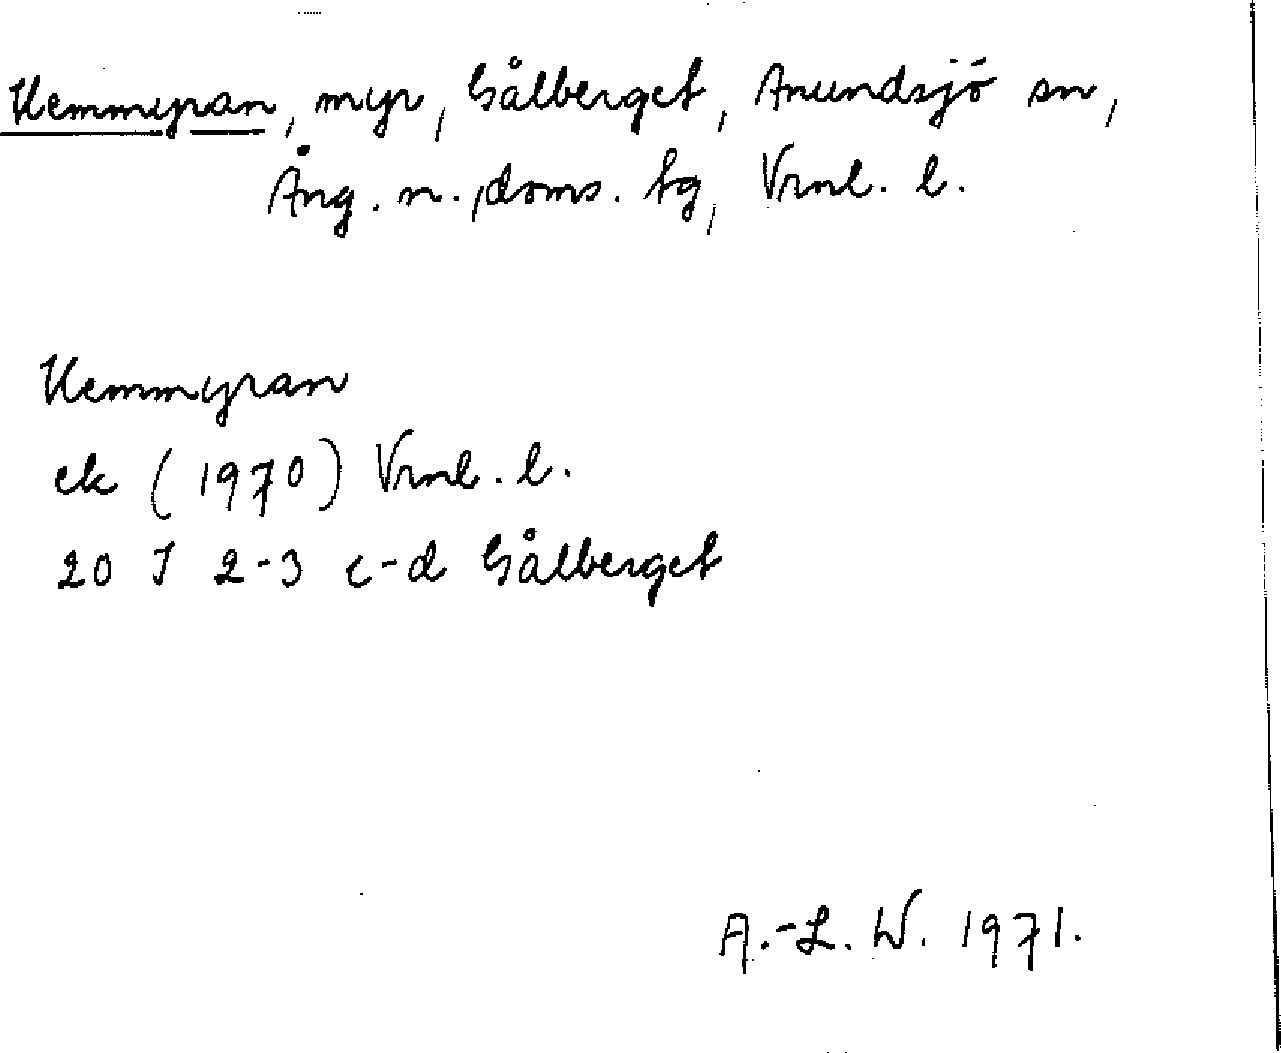 Hemmyran, myr, Gålberget, Anundsjö sn,
Ång. n. doms. tg, Vrnl. l.
Hemmyran
ek (1970) Vrnl. l.
20 J 2-3 c-d Gålberget
A.-L. W. 1971.